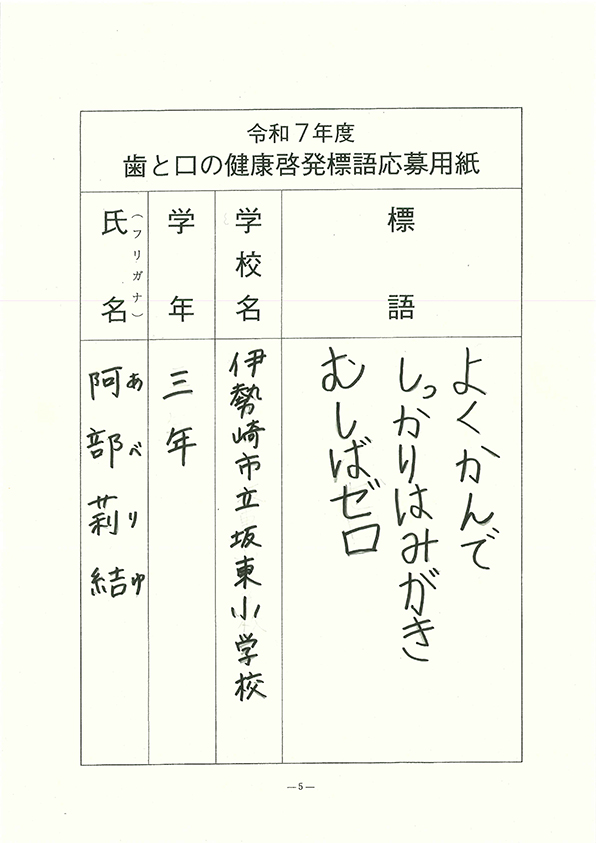 令和7年度
歯と口の健康啓発標語応募用紙
標語
よくかんで
しっかりはみがき
むしばゼロ
学校名
伊勢崎市立坂東小学校
学年
三年
氏名
(フリガナ)
阿部莉結
あべりゆ
—5—